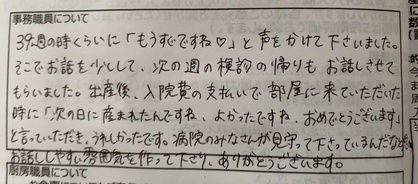 事務職員について
39週の時くらいに「もうすぐですね♡」と声をかけて下さいました。
そこでお話を少しして、次の週の検診の帰りもお話しさせて
もらいました。出産後、入院費の支払いで部屋に来ていただいた
時に「次の日に産まれたんですね、よかったですね、おめでとうございます」
と言っていただき、うれしかったです。病院のみなさんが見守って下さっているんだなぁ
お話ししやすい雰囲気を作って下さり、ありがとうございます。
厨房職員について